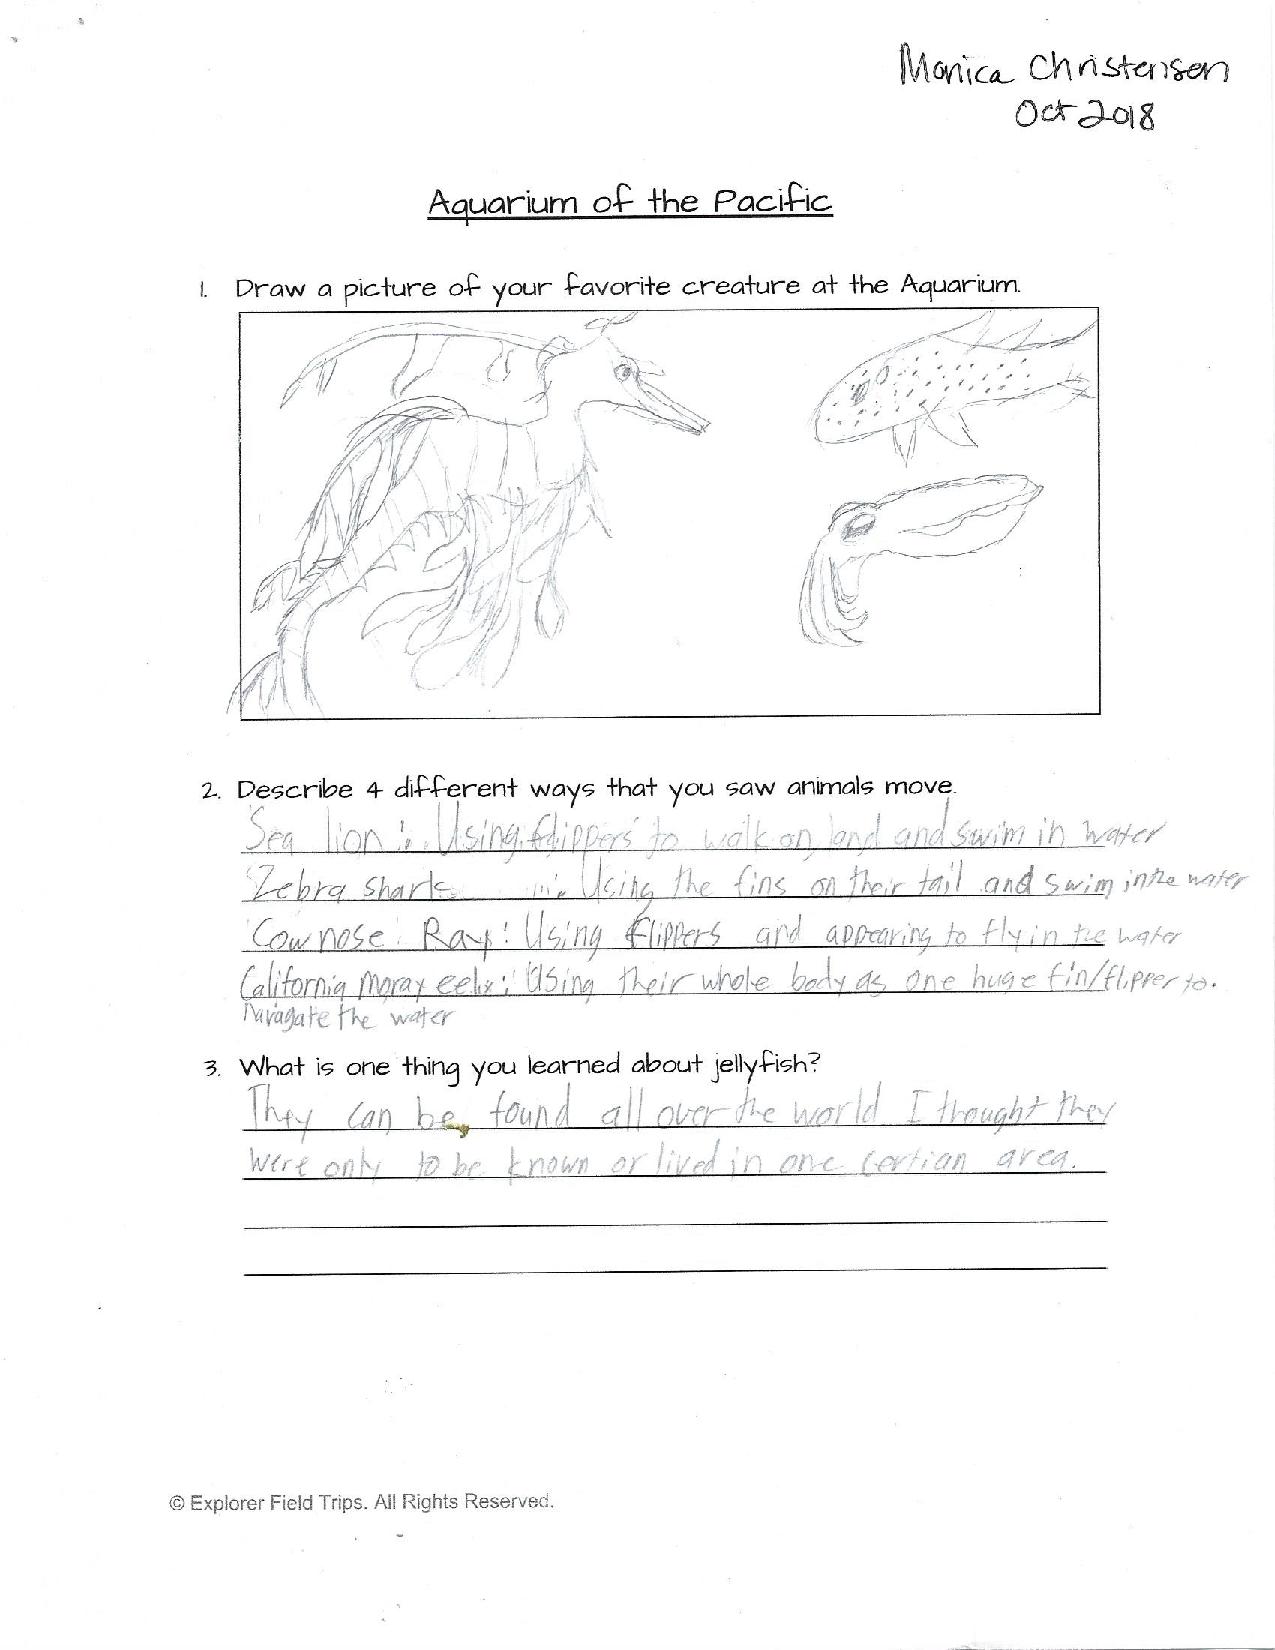 Monica Christensen
Oct 2018
Aquarium of the Pacific
1. Draw a picture of your favorite creature at the Aquarium.
2. Describe 4 different ways that you saw animals move.
Sea lion: Using flippers to walk on land and swim in water
Zebra shark : Using the fins on their tail and swim in the water
Cownose Ray: Using flippers and appearing to fly in the water
California moray eel: Using their whole body as one huge fin/flipper to.
Navagate the water
3. What is one thing you learned about jellyfish?
They can be found all over the world I thought they
were only to be known or lived in one certian area.
© Explorer Field Trips. All Rights Reserved.